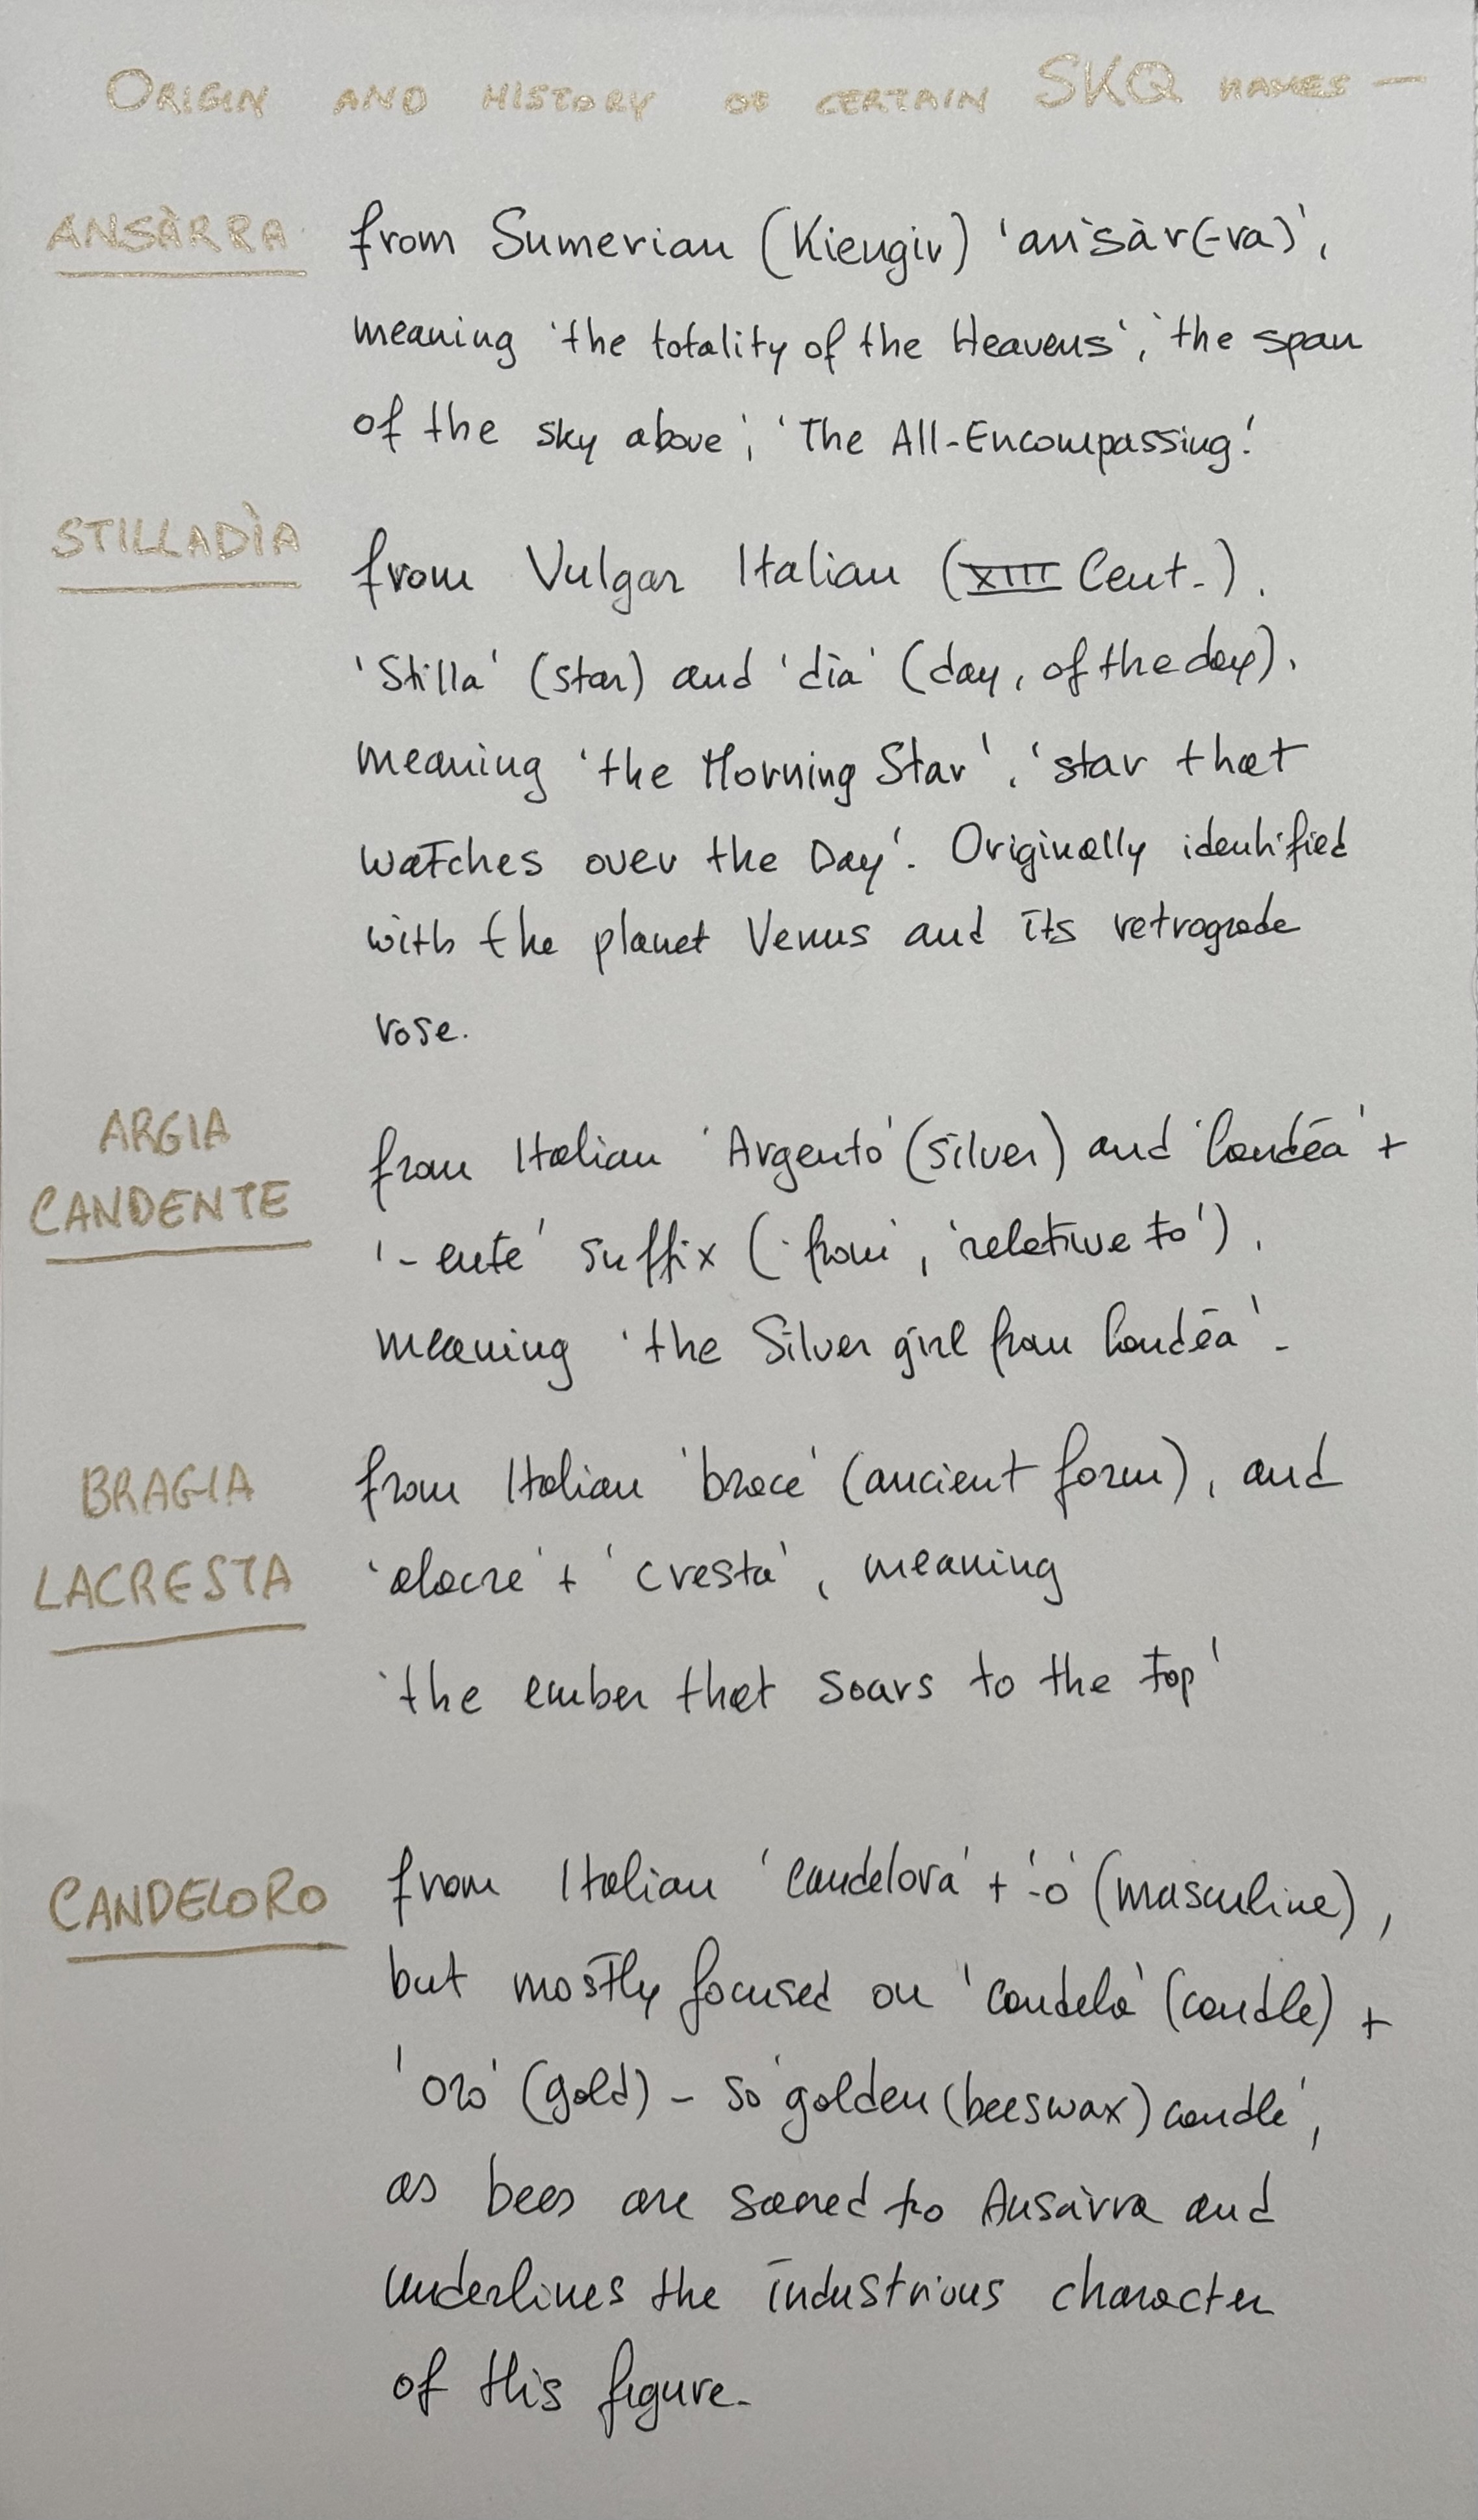 ORIGIN AND HISTORY OF CERTAIN SKQ NAMES —
ANSÀRRA from Sumerian (Kiengir) 'anšàr(-ra)',
meaning 'the totality of the Heavens', 'the span
of the sky above', 'The All-Encompassing'.
STILLADÌA from Vulgar Italian (XIII Cent.).
'Stilla' (star) and 'dìa' (day, of the day).
meaning 'the Morning Star', 'star that
watches over the Day'. Originally identified
with the planet Venus and its retrograde
rose.
ARGIA
CANDENTE
from Italian 'Argento' (silver) and 'Candēa' +
'-ente' suffix ('from', 'relative to'),
meaning 'the Silver girl from Candēa'.
BRAGIA
LACRESTA
from Italian 'brace' (ancient form), and
'alacre' + 'cresta', meaning
'the ember that soars to the top'
CANDELORO from Italian 'Candelora' + '-o' (masculine),
but mostly focused on 'candela' (candle) +
'oro' (gold) – so 'golden (beeswax) candle',
as bees are sacred to Ansàrra and
underlines the industrious character
of this figure.